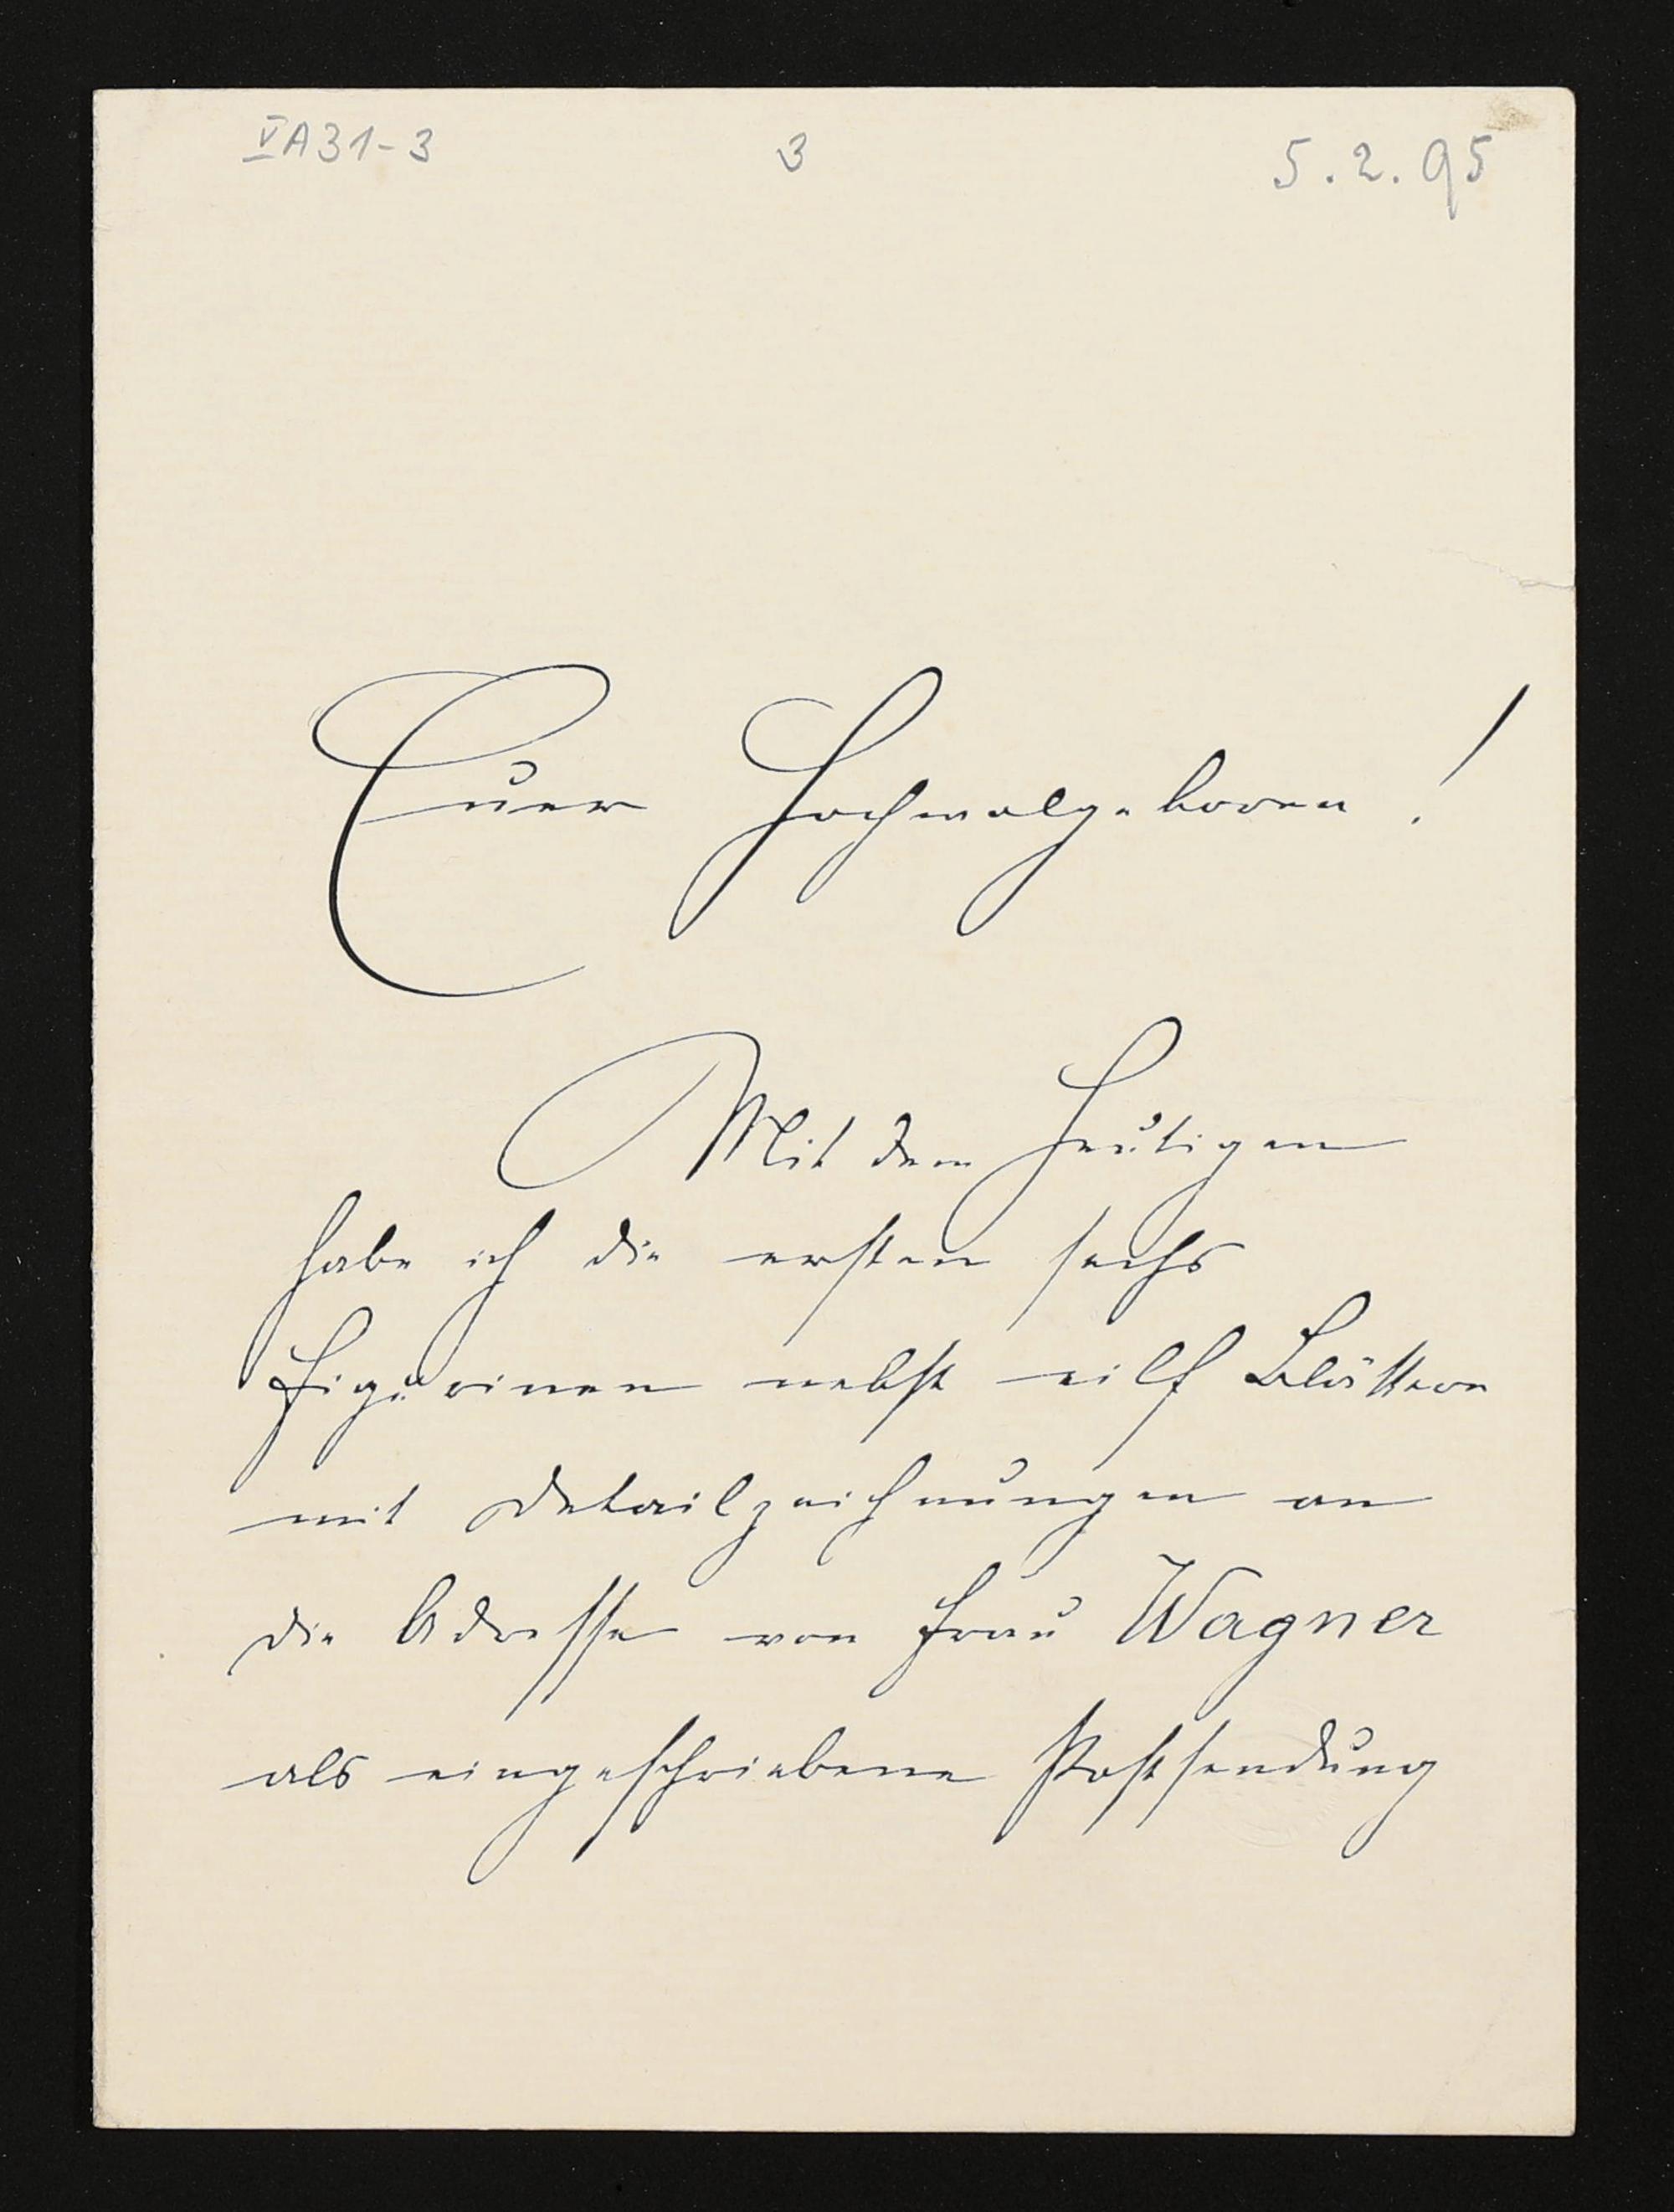 VA31-3 3 5.2.95
Euer Hochwolgeboren!
Mit dem Heutigen
habe ich die ersten sechs
Figurinen nebst eilf Blättern
mit Detailzeichnungen an
die Adresse von Frau Wagner
als eingeschriebene Postsendung